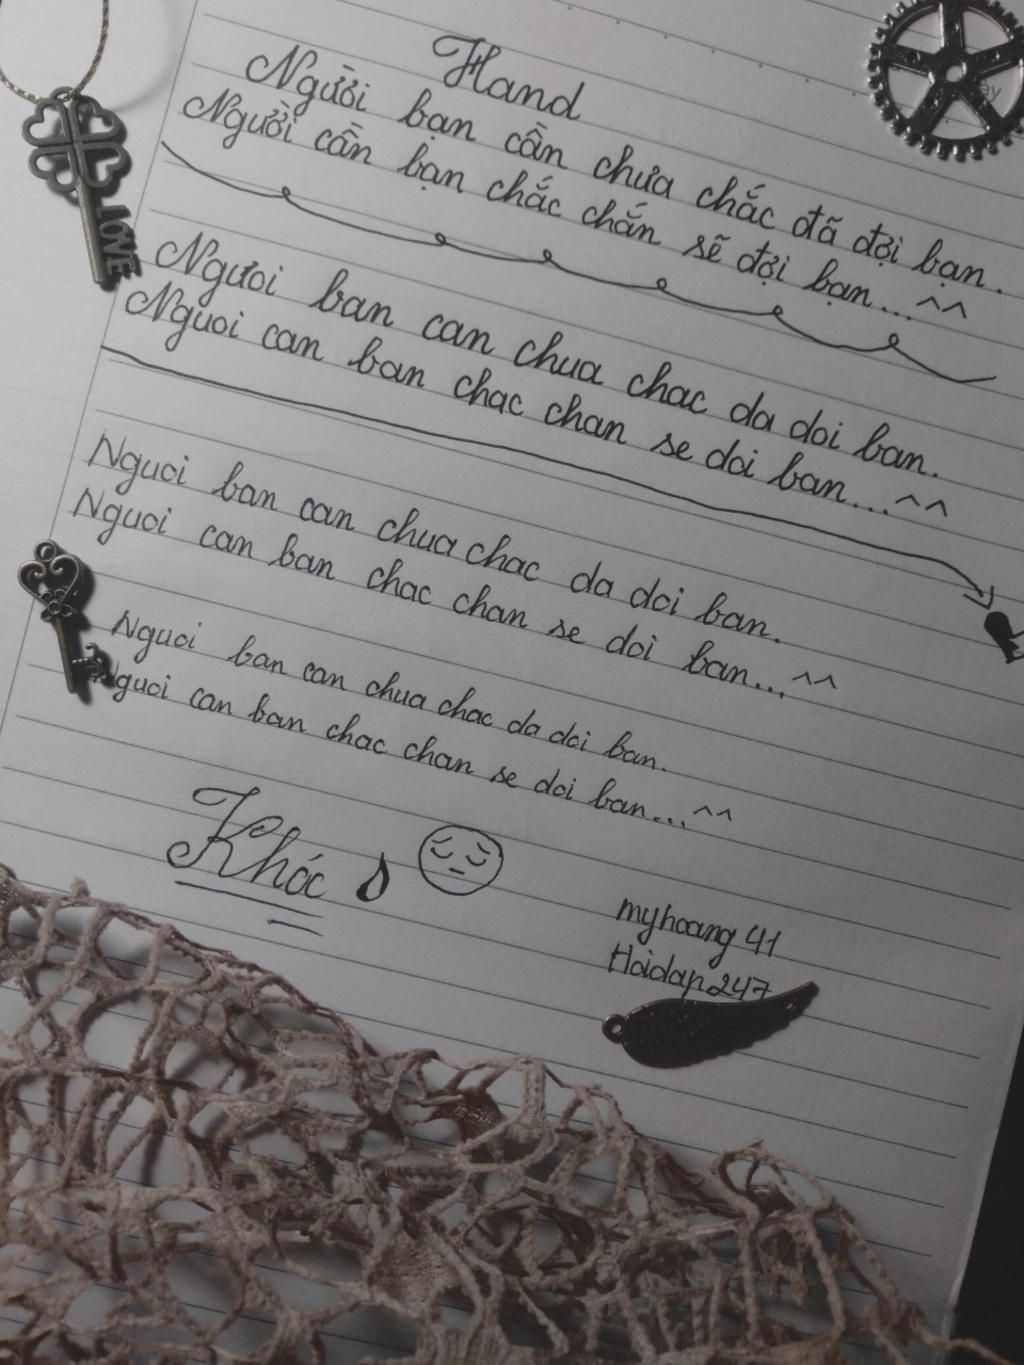 Hand
Người bạn cần chưa chắc đã đợi bạn.
Người cần bạn chắc chắn sẽ đợi bạn...^^
Nguơi ban can chua chac da doi ban.
Nguoi can ban chac chan se doi ban...^^
Nguoi ban can chua chac da doi ban.
Nguoi can ban chac chan se doi ban...^^
Nguoi ban can chua chac da doi ban.
Nguoi can ban chac chan se doi ban...^^
Khóc
myhoang 41
Hoidap247
LOVE